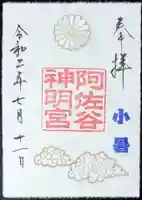 奉拝
小暑
阿佐谷
神明宮
令和三年七月十一日